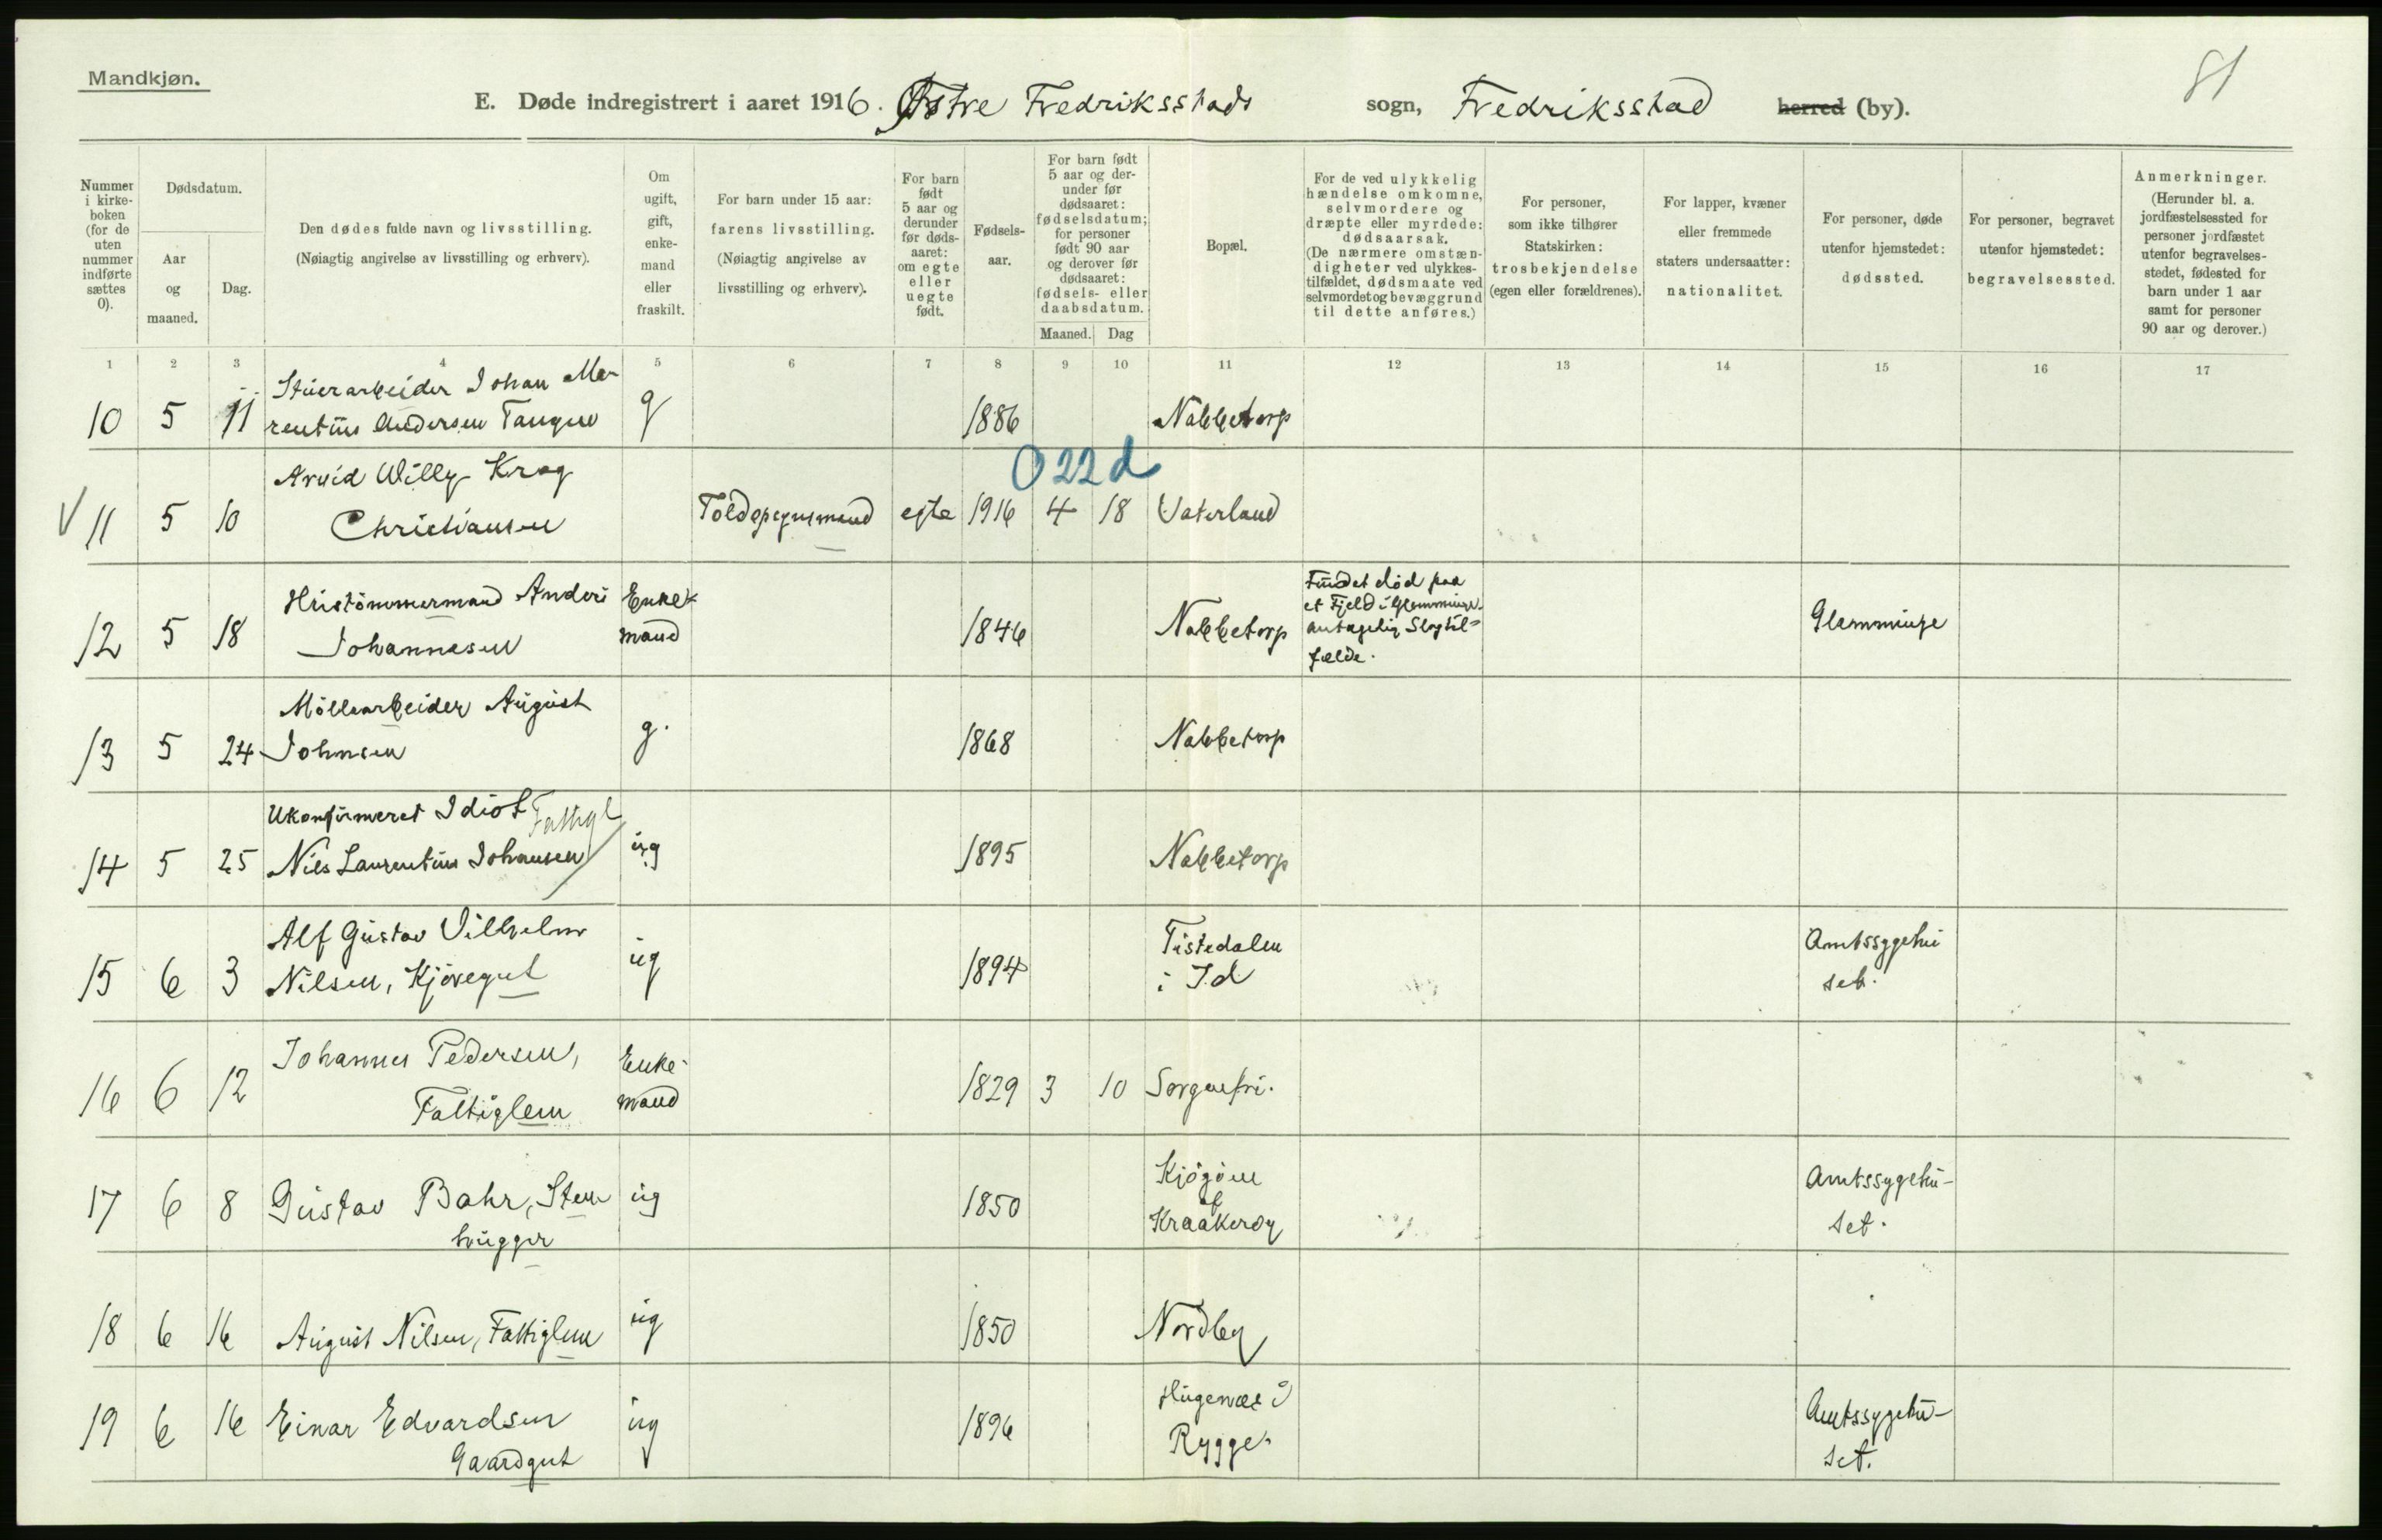 Mandkjøn.
81
E. Døde indregistrert i aaret 1916. Østre Fredriksstads sogn, Fredriksstad herred (by).
Nummer i kirkeboken (for de uten nummer indførte sættes 0).
Dødsdatum.
Aar og maaned.
Dag.
Den dødes fulde navn og livsstilling.
(Nøiagtig angivelse av livsstilling og erhverv).
Om ugift, gift, enkemand eller fraskilt.
For barn under 15 aar: farens livsstilling. (Nøiagtig angivelse av livsstilling og erhverv).
For barn født 5 aar og derunder før dødsaaret: om egte eller uegte født.
Fødselsaar.
For barn født 5 aar og derunder før dødsaaret: fødselsdatum; for personer født 90 aar og derover før dødsaaret: fødsels- eller daabsdatum.
Maaned. Dag
Bopæl.
For de ved ulykkelig hændelse omkomne, selvmordere og dræpte eller myrdede: dødsaarsak. (De nærmere omstændigheter ved ulykkestilfældet, dødsmaate ved selvmordet og bevæggrund til dette anføres.)
For personer, som ikke tilhører Statskirken: trosbekjendelse (egen eller forældrenes).
For lapper, kvæner eller fremmede staters undersaatter: nationalitet.
For personer, døde utenfor hjemstedet: dødssted.
For personer, begravet utenfor hjemstedet: begravelsessted.
Anmerkninger. (Herunder bl. a. jordfæstelsessted for personer jordfæstet utenfor begravelsesstedet, fødested for barn under 1 aar samt for personer 90 aar og derover.)
1 2 3 4 5 6 7 8 9 10 11 12 13 14 15 16 17
Stuerarbeider Johan Ma-
10 5 11 rentius Andersen Tangen g 1886 Nabbetorp
022d
Arvid Willy Krog
V 11 5 10 Christiansen Toldopsynsmand egte 1916 4 18 Vaterland
Hustömmermand Anders Enke-
12 5 18 Johannesen mand 1846 Nabbetorp
Fundet död paa
et Fjeld i Glemminge.
antagelig Slagtil-
fælde.
Glemminge
Möllearbeider August
13 5 24 Johnsen g. 1868 Nabbetorp
Ukonfirmeret Idiot Fattigl
14 5 25 Nils Laurentius Johansen ug 1895 Nabbetorp
Alf Gustav Vilhelm Tistedalen Amtssygehu
15 6 3 Nilsen, Kjöregut ug 1894 i Id set.
Johannes Pedersen, Enke-
16 6 12 Fattiglem mand 1829 3 10 Sorgenfri.
Kjögöen Amtssygehu-
17 6 8 Gustav Bahr, Sten ug 1850 af
hugger Kraakeröy set.
18 6 16 August Nilsen, Fattiglem ug 1850 Nordby
Hugenæs i Amtssygehu-
19 6 16 Einar Edvardsen ug 1896 Rygge.
Gaardgut set.